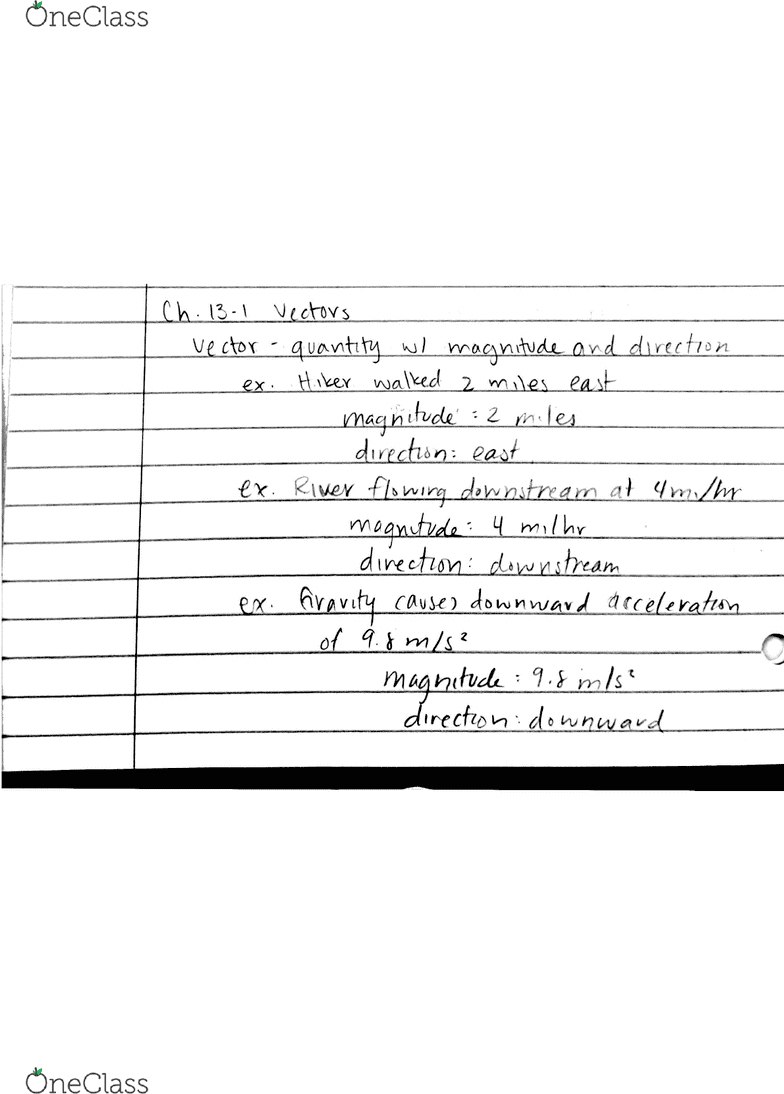 OneClass
Ch. 13-1 Vectors
Vector - quantity w/ magnitude and direction
ex. Hiker walked 2 miles east
magnitude: 2 miles
direction: east
ex. River flowing downstream at 4 mi/hr
magnitude: 4 mi/hr
direction: downstream
ex. Gravity causes downward acceleration
of 9.8 m/s²
magnitude: 9.8 m/s²
direction: downward
OneClass